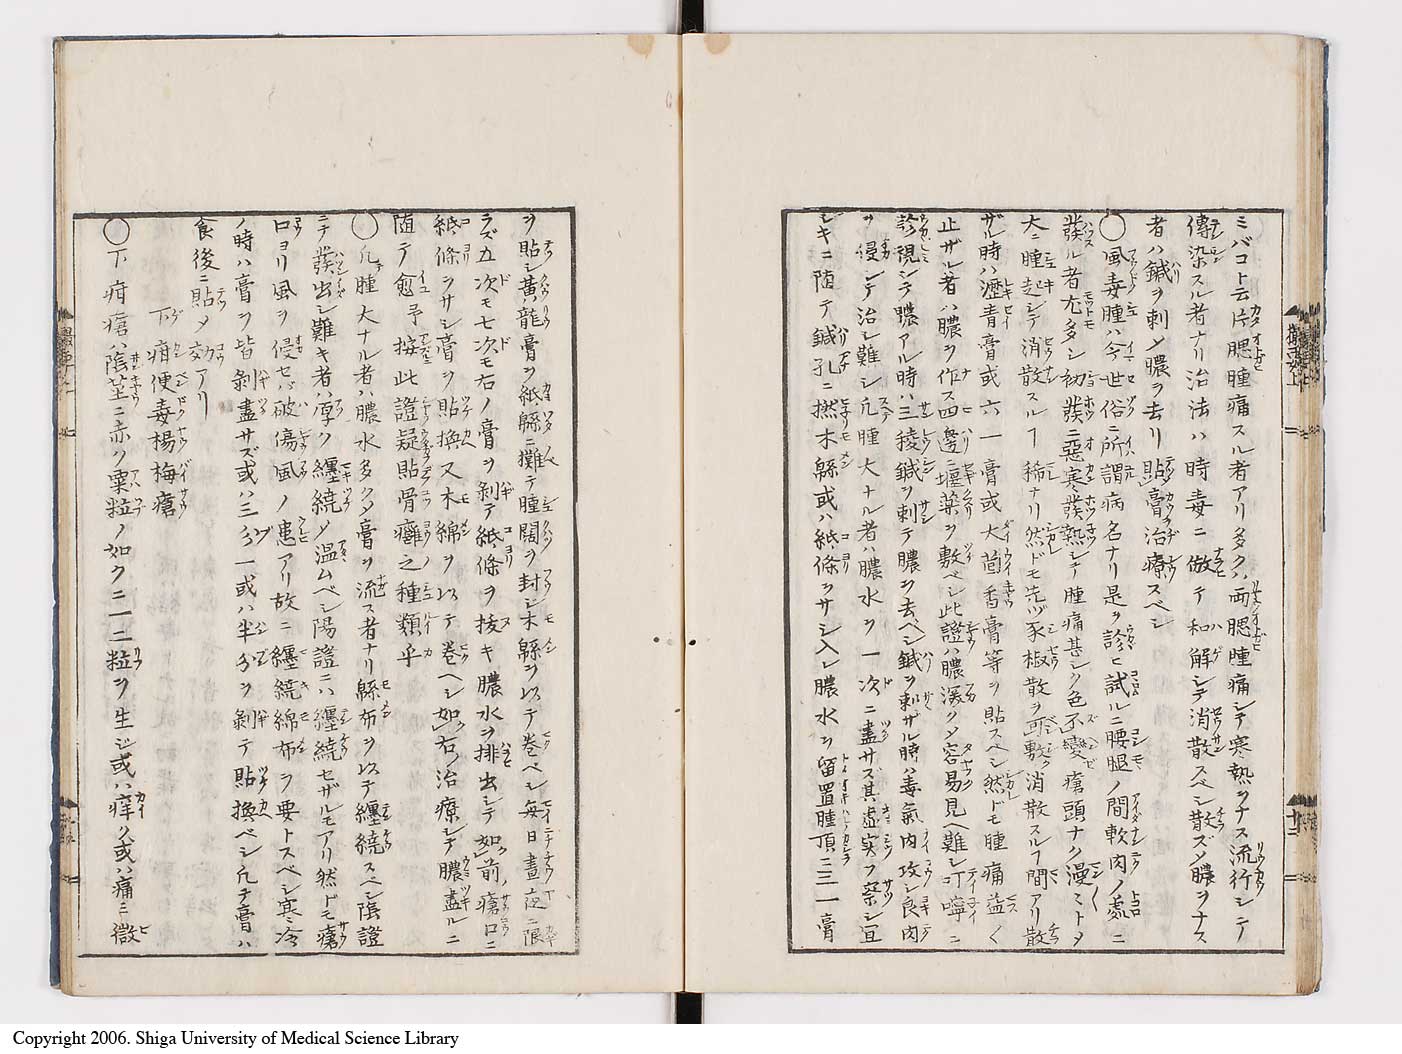 ミバコト云片腮腫痛スル者アリ多クハ両腮腫痛シテ寒熱ヲナス流行シテ
傳染スル者ナリ治法ハ時毒ニ倣テ和解シテ消散スベシ散ズメ膿ヲナス
者ハ鍼ヲ刺メ膿ヲ去リ貼膏治療スベシ
〇風毒腫ハ今世俗ニ所謂病名ナリ是ヲ診ヒ試ルニ腰腿ノ間軟肉ノ處ニ
發ル者尤多シ初發ニ惡寒發熱シテ腫痛甚シク色不變瘡頭ナク漫ミトメ
大ニ腫起シテ消散スルヿ稀ナリ然ドモ先ヅ豕椒散ヲ可敷消散スルヿ間アリ散
ザル時ハ瀝青膏或六一膏或大茴香膏等ヲ貼スベシ然ドモ腫痛益く
止ザル者ハ膿ヲ作ス四邊ニ堰薬ヲ敷ベシ此證ハ膿深クメ容易見ヘ難シ叮嚀ニ
診視シテ膿アル時ハ三稜鍼ヲ刺テ膿ヲ去ベシ鍼ヲ刺ザル時ハ毒氣内攻シ良肉
ヲ侵シテ治シ難シ凢腫大ナル者ハ膿水ヲ一次ニ盡サス其虚実ヲ察シ宜
シキニ随テ鍼孔ニ撚木緜或ハ紙條ヲサシ入レ膿水ヲ留置腫頂ニ三一膏
ヲ貼シ黄龍膏ヲ紙緜ニ攤テ腫闊ヲ封シ木緜ヲ以テ巻ベシ毎日晝夜ニ限
ラズ五次モ七次モ右ノ膏ヲ剝テ紙條ヲ抜キ膿水ヲ排出シテ如前瘡口ニ
紙條ヲサシ膏ヲ貼換又木綿ヲ以テ巻ヘシ如右治療シテ膿盡ルニ
随テ愈予按此證疑貼骨癰之種類乎
〇凢腫大ナル者ハ膿水多クメ膏ヲ流ス者ナリ緜布ヲ以テ纏繞スベシ陰證
ニテ發出シ難キ者ハ厚ク纏繞メ温ムベシ陽證ニハ纏繞セザルモアリ然ドモ瘡
口ヨリ風ヲ侵セバ破傷風ノ患アリ故ニ纏繞綿布ヲ要トスベシ寒冷
ノ時ハ膏ヲ皆剝盡サズ或ハ三分一或ハ半分ヲ剝テ貼換ベシ凢テ膏ハ
食後ニ貼メ効アリ
下疳便毒楊梅瘡
〇下疳瘡ハ陰茎ニ赤ク粟粒ノ如ク一二粒ヲ生ジ或ハ痒ク或ハ痛ミ微
Copyright 2006. Shiga University of Medical Science Library